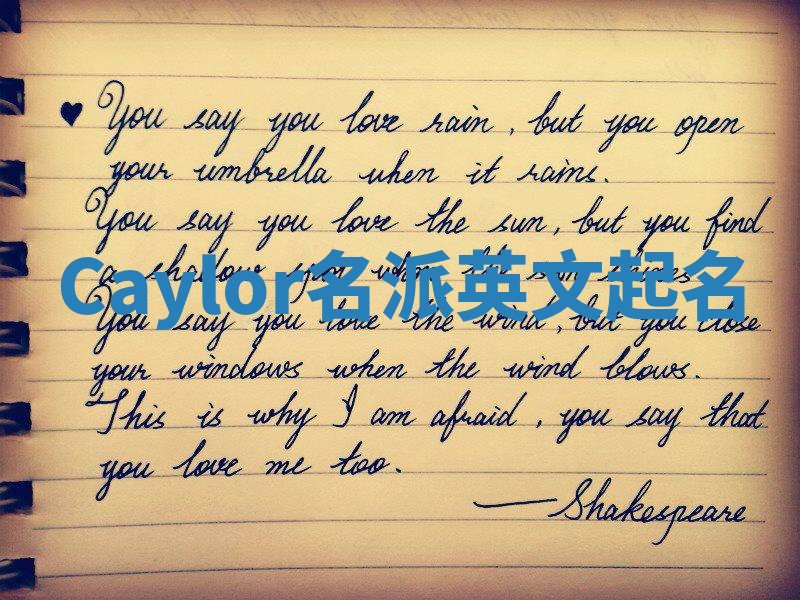 ♥ You say you love rain, but you open
your umbrella when it rains.
You say you love the sun, but you find
a shadow spot when the sun shines
Caylor名派英文起名
You say you love the wind, but you close
your windows when the wind blows.
This is why I am afraid, you say that
you love me too.
—Shakespeare